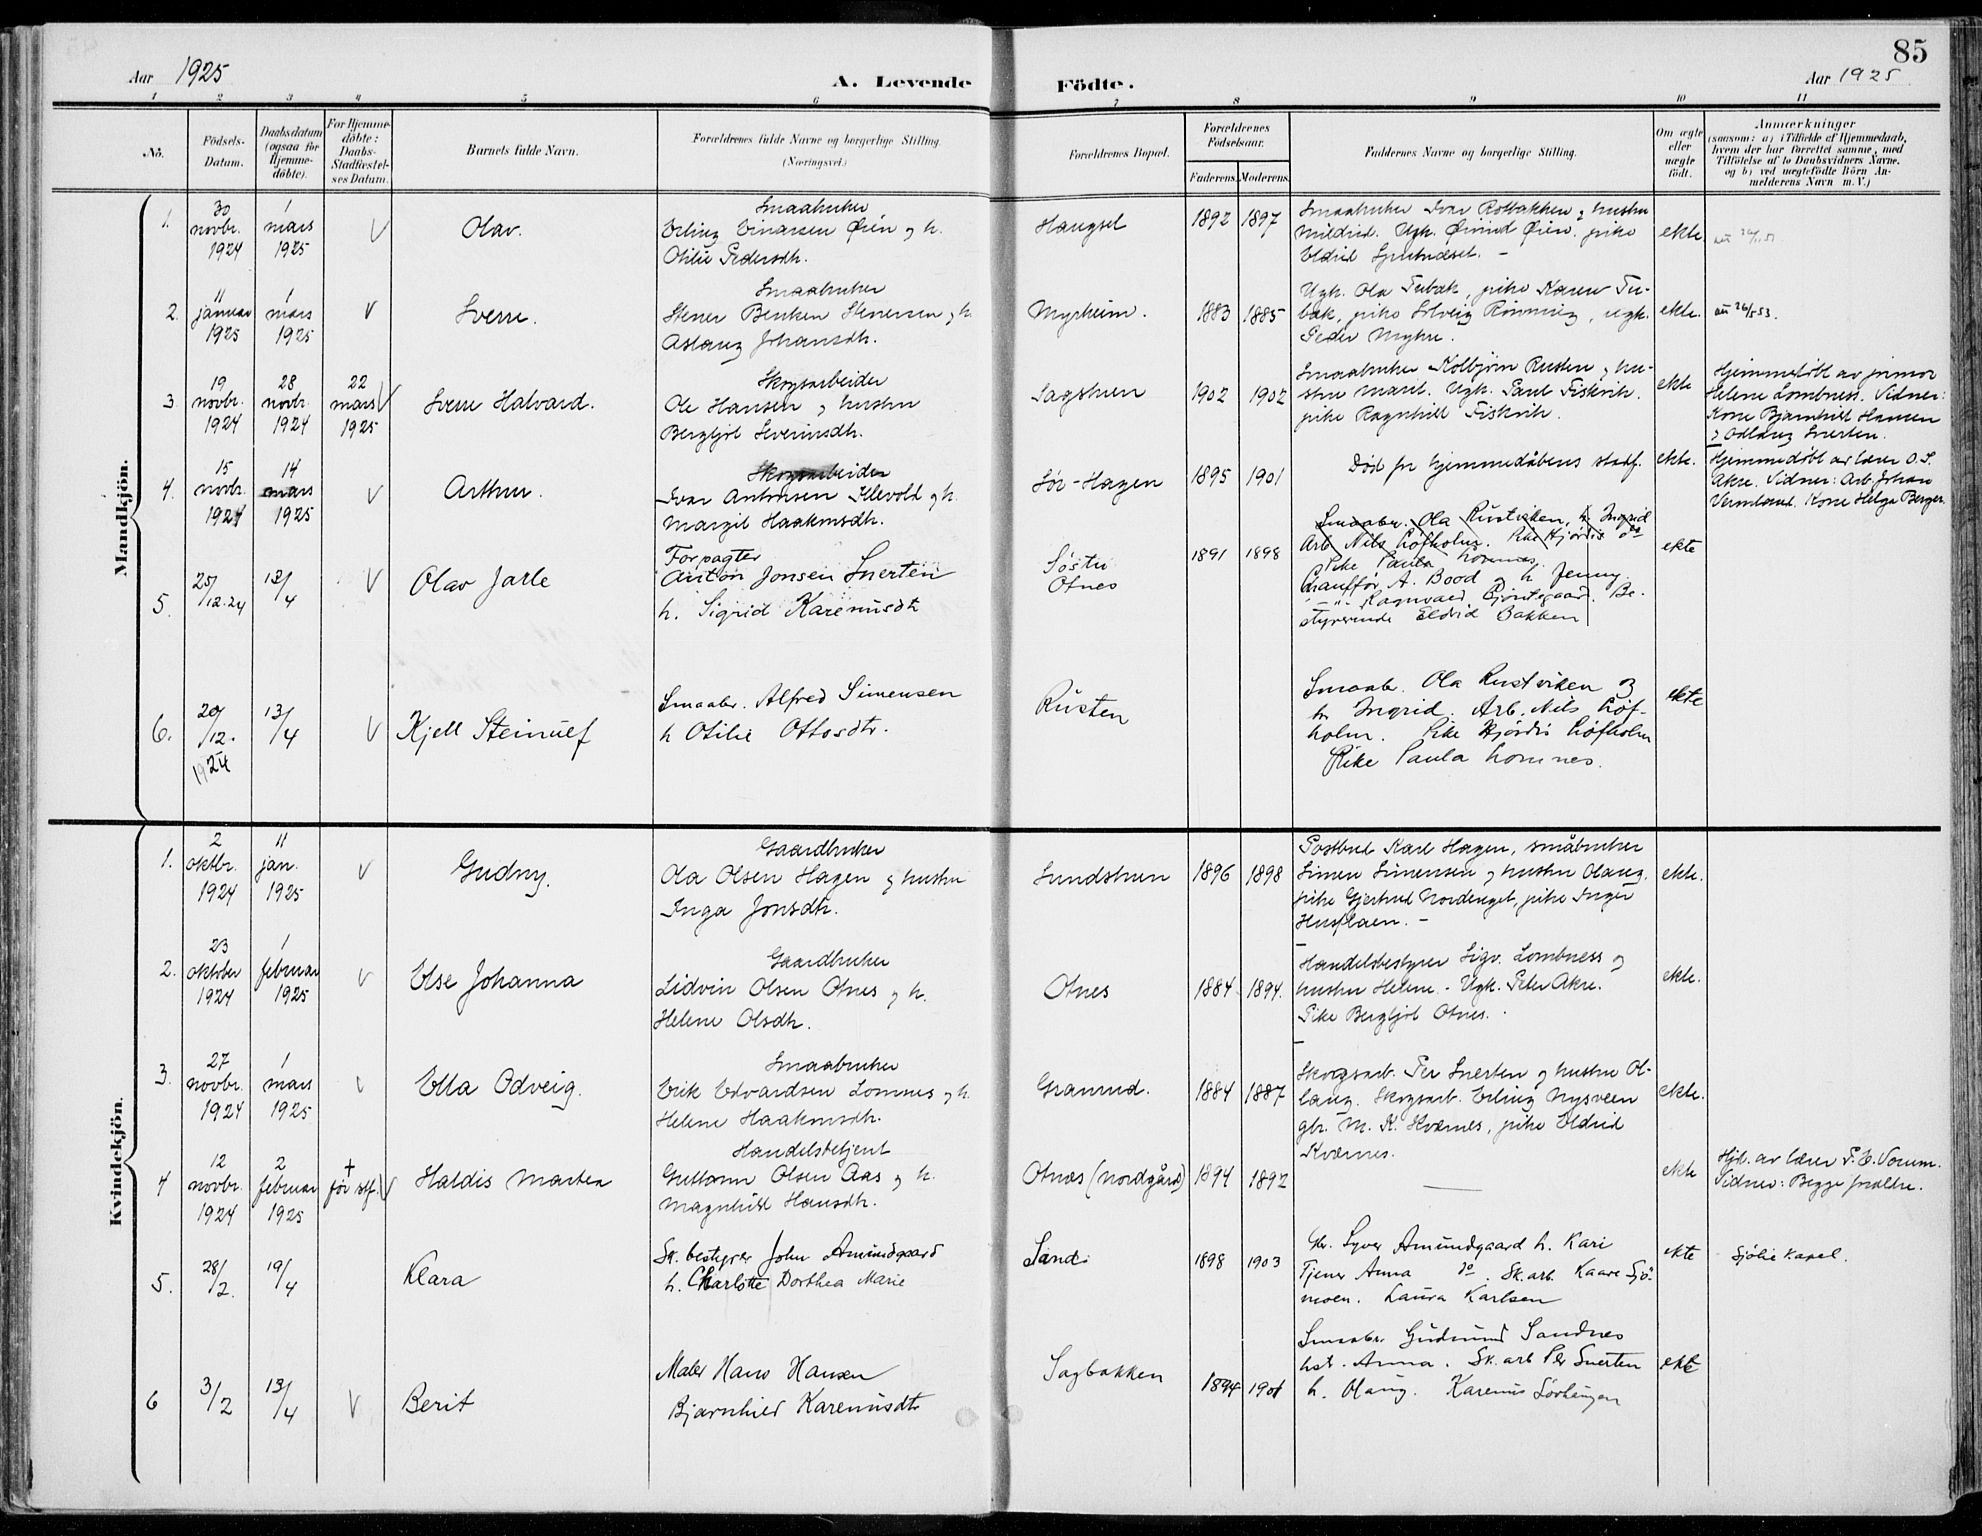 85
Aar 1925
A. Levende Födte.
Aar 1925
1 2 3 4 5 6 7 8 9 10 11
No.
Födsels-Datum.
Daabsdatum (ogsaa for Hjemme-döbte).
For Hjemme-döbte: Daabs-Stadfæstel-ses Datum.
Barnets fulde Navn.
Forældrenes fulde Navne og borgerlige Stilling.
(Næringsvei.)
Forældrenes Bopæl.
Forældrenes Födselsaar.
Faderens. Moderens.
Faddernes Navne og borgerlige Stilling.
Om ægte eller uægte födt.
Anmærkninger
(saasom: a) i Tilfælde af Hjemmedaab,
hvem der har forrettet samme, med
Tilföielse af to Daabsvidners Navne.
og b) ved uægtefödte Börn An-
melderens Navn m. V.)
Mandkjön.
1. 30 novbr. 1924
1 mars 1925
Olav.
Smaabruker
Erling Einarsen Øien og h.
Otilie Pedersdtr.
Haugset
1892 1897
Smaabruker Ivar Rotbakken og hustru
Mildrid. Ugk. Øivind Øien. pike
Eldrid
ekte.
2. 11 januar 1925
1 mars 1925
Sverre.
Smaabruker
Stener Benken Stenersen og h.
Aslaug Johansdtr.
Myrheim.
1883 1885
Ugk. Ola Trebæk, pike Karen Tre-
bæk, pike Solveig Rönning, ugk.
Peder Myhre.
ekte.
3 19 novbr. 1924
28 novbr. 1924
22 mars 1925
Sverre Halvard.
Skogsarbeider
Ole Hansen og hustru
Bergljot Severinsdtr.
Sagstuen
1902 1902
Smaabruker Kolbjörn Rusten og hu-
stru Marit. Ugk. Paul Fiskvik.
pike Ragnhild Fiskvik.
ekte
Hjemmedöbt av jormor
Helene Lombness. Vidner:
Kone Bjarnhild Hansen
og Odlaug Snerten.
4. 15 novbr. 1924
14 mars 1925
Arthur.
Skogsarbeider
Ivar Antonsen Illevold og h.
Margit Haakonsdtr.
Sör-Hagen
1895 1901
Død før hjemmedåbens stadf.
ekte.
Hjemmedöbt av lærer O. S.
Akre. Vidner: Arb. Johan
Vermlund. Kone Helga Berger.
5. 25/12.24
12/4
Olav Jarle
Forpagter
Anton Jonsen Snerten
h. Sigrid Karenusdtr
Söstu
Otnes
1891 1898
Smaabr. Ola Rustviken, h Ingrid
Arb Nils Löfholm. Pike Hjördis do
Pike Paula Lomnes.
Chauffør A. Bood og h Jenny.
—"— Ragnvald Gjöntegaard. Be-
styrerinde Eldrid Bakken
ekte
6. 20/12. 1924
13/4
Kjell Steinulf
Smaabr. Alfred Simensen
h Otilie Ottosdtr.
Rusten
Smaabr. Ola Rustviken og
h. Ingrid. Arb. Nils Löf-
holm. Pike Hjördis Löfholm
Pike Paula Lomnes.
ekte
Kvindekjön.
1. 2 oktbr. 1924
11 jan. 1925
Gudny.
Gaardbruker
Ola Olsen Hagen og hustru
Inga Jonsdtr.
Sundstuen
1896 1898
Postbud Karl Hagen, småbruker
Simen Simensen og hustru Olaug.
pike Gjertrud Nordeng​et, pike Inger
Husflaen. –
ekte.
2. 23 oktober 1924
1 februar 1925
Else Johanna
Gaardbruker
Lidvin Olsen Otnes og h.
Helene Olsdtr.
Otnes
1884. 1894.
Handelsbestyrer Sigv. Lombness og
hustru Helene. - Ugk. Peter Akre.
Pike Bergljot Otnes.
ekte.
3. 27 novbr. 1924
1 mars 1925
Ella Odveig.
Smaabruker
Erik Edvardsen Lomnes og h.
Helene Haakonsdtr.
Granrud.
1884 1887
Skogsarb. Per Snerten og hustru Ol-
laug. Skogsarb. Erling Nysveen
gbr. M. K. Kværnes, pike Eldrid
Kværnes.
ekte.
4 12 novbr. 1924
2 februar 1925
† før stf.
Haldis Marten
Handelsbetjent
Guttorm Olsen Aas og h.
Magnhild Hansdtr.
Otnes (Nordgård)
1894 1892
ekte
Hjd. av lærer P. E. Vorum.
Vidner: Begge foreldre.
5. 28/2.
19/4
Klara
Sk. bestyrer John Amundgaard
h. Charlotte Dorthea Marie
Sand.
1898 1903
Gbr. Syver Amundgaard h. Kari
Tjener Anna do. Sk. arb. Kaare Sjö-
moen. Laura Karlsen
ekte
Sjölie Kapel.
6 3/2
13/4
Berit
Maler Hans Hansen
Bjarnhild Karenusdtr
Sagbakken
1894 1901
Smaabr. Gudmund Sandnes
hst. Anna. Sk. arb Per Snerten
h. Olaug. Karenus Sörhaugen
ekte